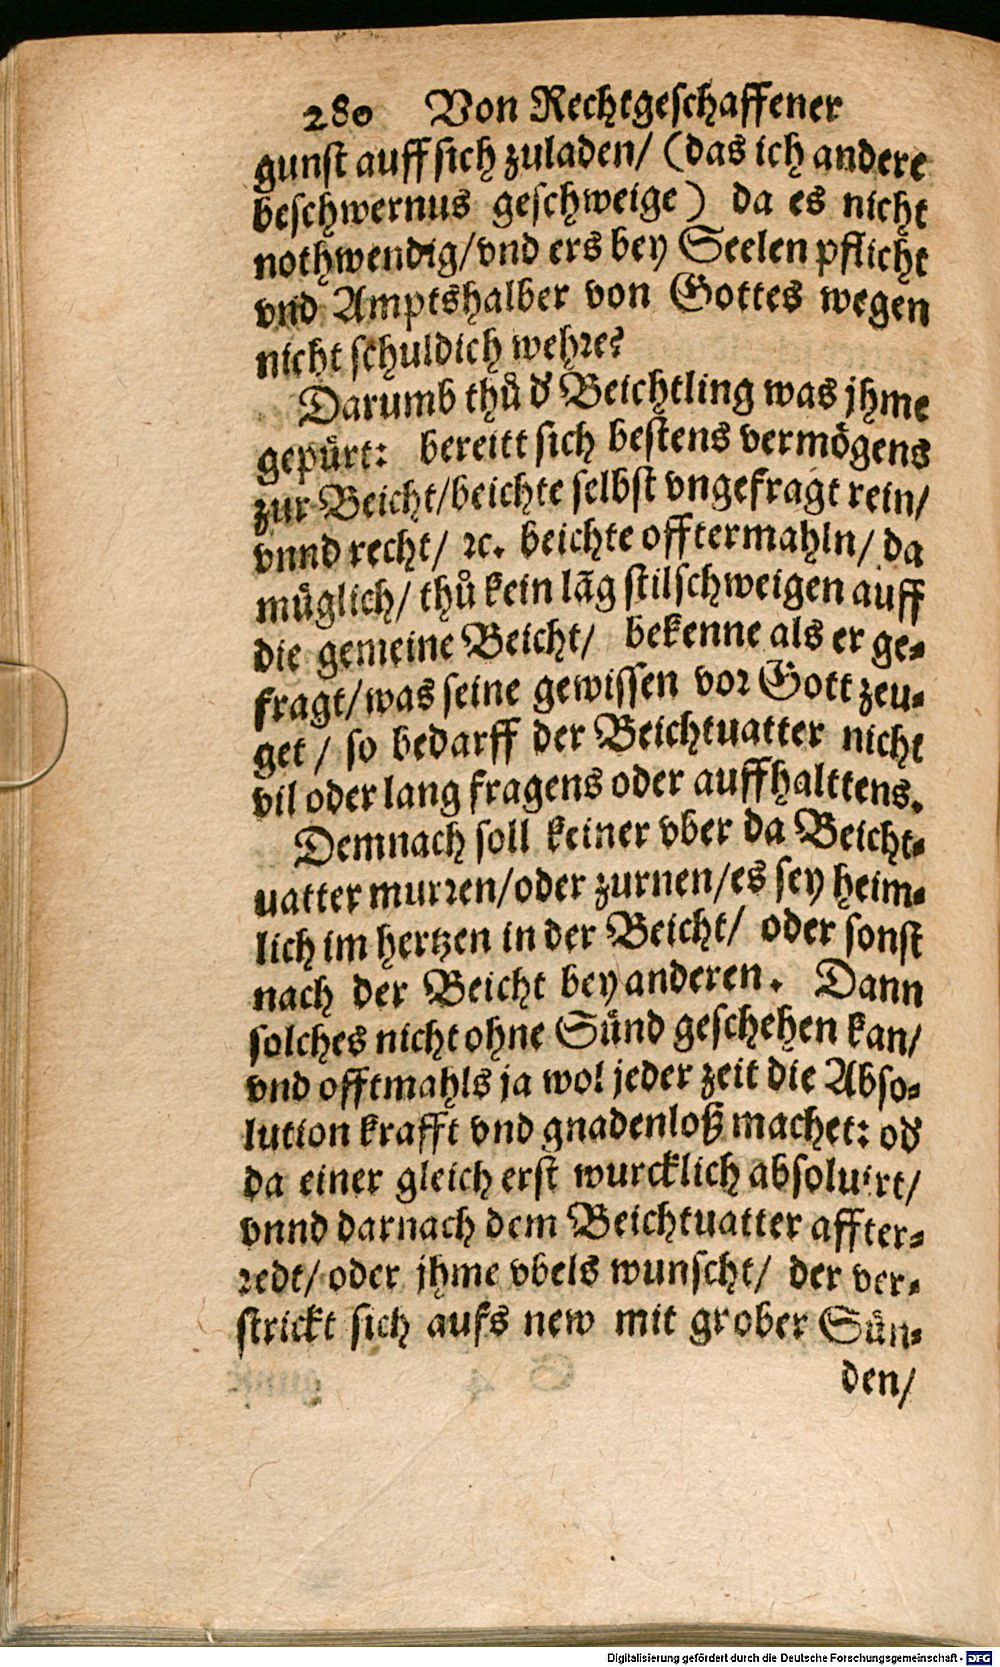 280 Von Rechtgeschaffener
gunst auff sich zuladen/ (das ich andere
beschwernus geschweige) da es nicht
nothwendig/ vnd ers bey Seelen pflicht
vnd Amptshalber von Gottes wegen
nicht schuldich wehre?
Darumb thuͦ dʼ Beichtling was jhme
gepuͤrt: bereitt sich bestens vermoͤgens
zur Beicht/ beichte selbst vngefragt rein/
vnnd recht/ ꝛc. beichte offtermahln/ da
muͤglich/ thuͦ kein lãg stilschweigen auff
die gemeine Beicht/ bekenne als er ge⸗
fragt/ was seine gewissen vor Gott zeu⸗
get/ so bedarff der Beichtuatter nicht
vil oder lang fragens oder auffhalttens.
Demnach soll keiner vber da Beicht⸗
uatter murren/ oder zurnen/ es sey heim⸗
lich im hertzen in der Beicht/ oder sonst
nach der Beicht bey anderen. Dann
solches nicht ohne Suͤnd geschehen kan/
vnd offtmahls ja wol jeder zeit die Abso⸗
lution krafft vnd gnadenloß machet: odʼ
da einer gleich erst wurcklich absoluirt/
vnnd darnach dem Beichtuatter affter⸗
redt/ oder jhme vbels wunscht/ der ver⸗
strickt sich aufs new mit grober Suͤn⸗
den/
Digitalisierung gefördert durch die Deutsche Forschungsgemeinschaft - DFG